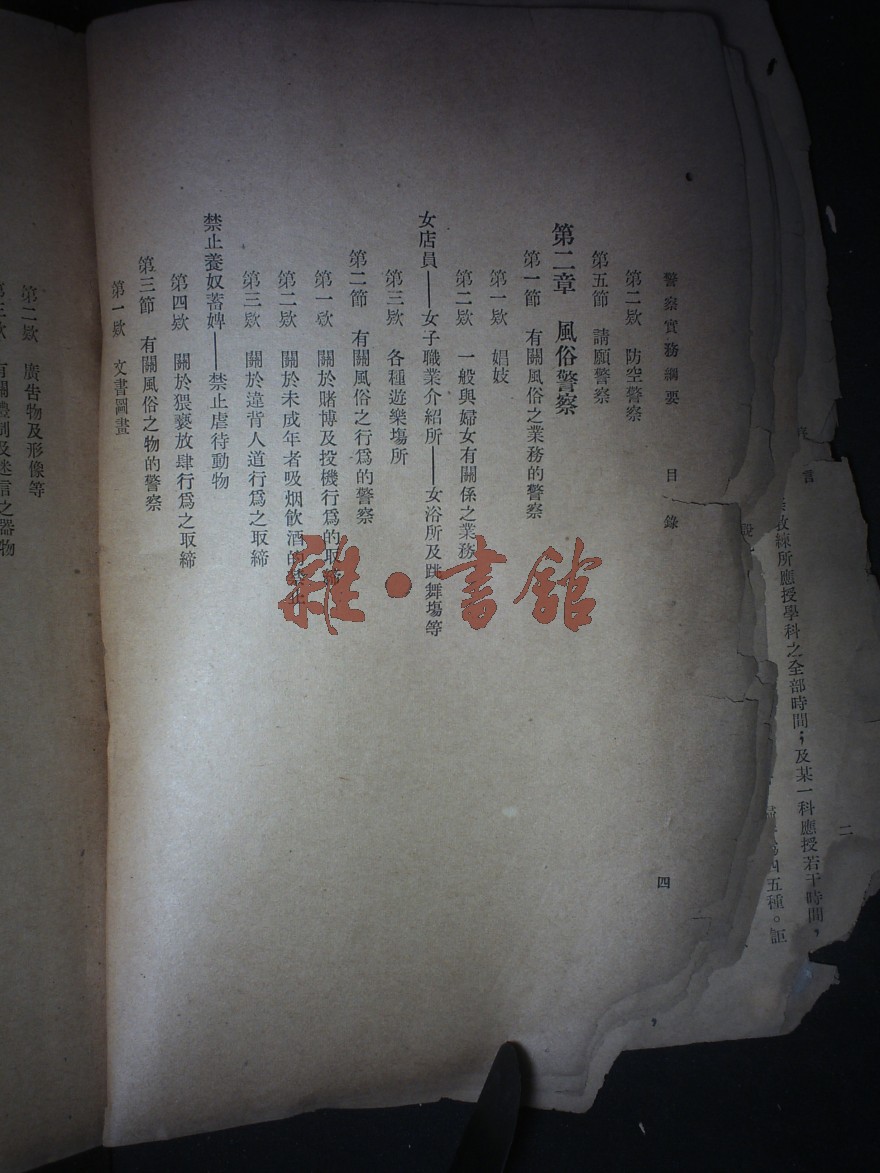 警察實務綱要 目錄 四
第二欵 防空警察
第五節 請願警察
第二章 風俗警察
第一節 有關風俗之業務的警察
第一欵 娼妓
第二欵 一般與婦女有關係之業務
女店員——女子職業介紹所——女浴所及跳舞塲等
第三欵 各種遊樂塲所
第二節 有關風俗之行爲的警察
第一欵 關於賭博及投機行爲的取締
第二欵 關於未成年者吸烟飲酒的禁止
第三欵 關於違背人道行爲之取締
禁止養奴蓄婢——禁止虐待動物
第四欵 關於猥褻放肆行爲之取締
第三節 有關風俗之物的警察
第一欵 文書圖畫
第二欵 廣告物及形像等
雜·書舘
言 二
教練所應授學科之全部時間；及某一科應授若干時間，
四五種。詎